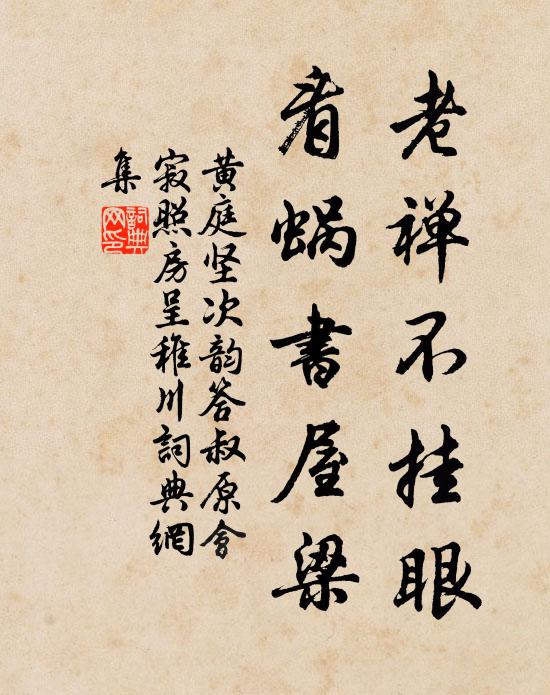 老禅不挂眼
看蜗書屋梁
黄庭坚次韵答叔原會
寂照房呈稚川詞典網
集
詞典
网印